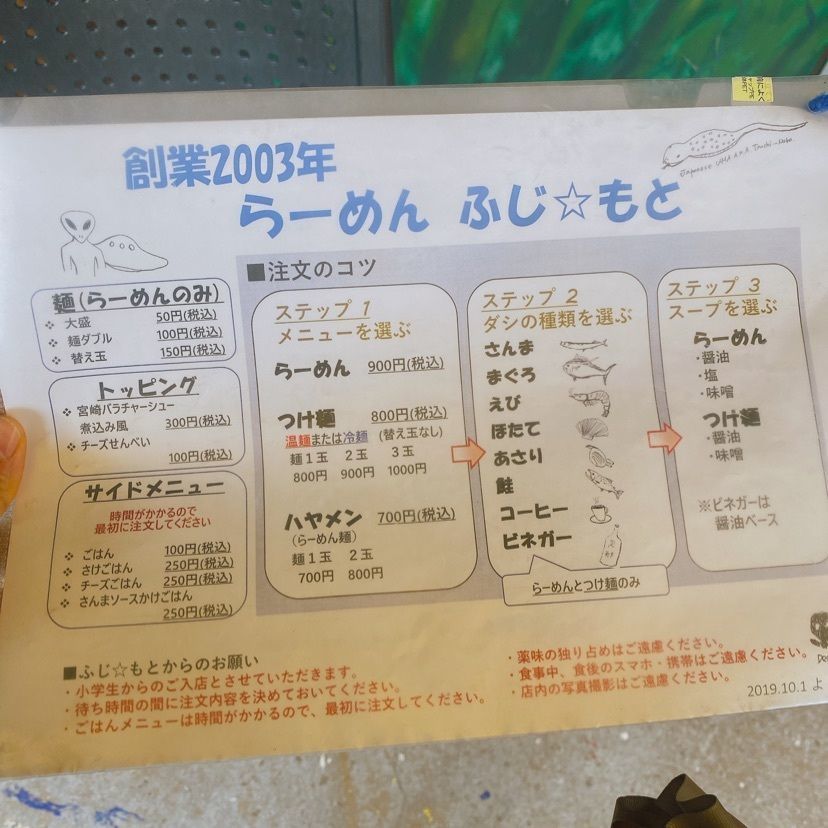 創業2003年
らーめん ふじ☆もと
Japanese UMA A.K.A
麺(らーめんのみ)
❖ 大盛 50円(税込)
❖ 麺ダブル 100円(税込)
❖ 替え玉 150円(税込)
トッピング
❖ 宮崎バラチャーシュー
煮込み風 300円(税込)
❖ チーズせんべい
100円(税込)
サイドメニュー
時間がかかるので
最初に注文してください
❖ ごはん 100円(税込)
❖ さけごはん 250円(税込)
❖ チーズごはん 250円(税込)
❖ さんまソースかけごはん
250円(税込)
■注文のコツ
ステップ 1
メニューを選ぶ
らーめん 900円(税込)
つけ麺 800円(税込)
温麺または冷麺 (替え玉なし)
麺1玉 2玉 3玉
800円 900円 1000円
ハヤメン 700円(税込)
(らーめん麺)
麺1玉 2玉
700円 800円
ステップ 2
ダシの種類を選ぶ
さんま
まぐろ
えび
ほたて
あさり
鮭
コーヒー
ビネガー
らーめんとつけ麺のみ
ステップ 3
スープを選ぶ
らーめん
・醤油
・塩
・味噌
つけ麺
・醤油
・味噌
※ビネガーは
醤油ベース
■ふじ☆もとからのお願い
・小学生からのご入店とさせていただきます。
・待ち時間の間に注文内容を決めておいてください。
・ごはんメニューは時間がかかるので、最初に注文してください。
・薬味の独り占めはご遠慮ください。
・食事中、食後のスマホ・携帯はご遠慮ください。
・店内の写真撮影はご遠慮ください。
2019.10.1 よ